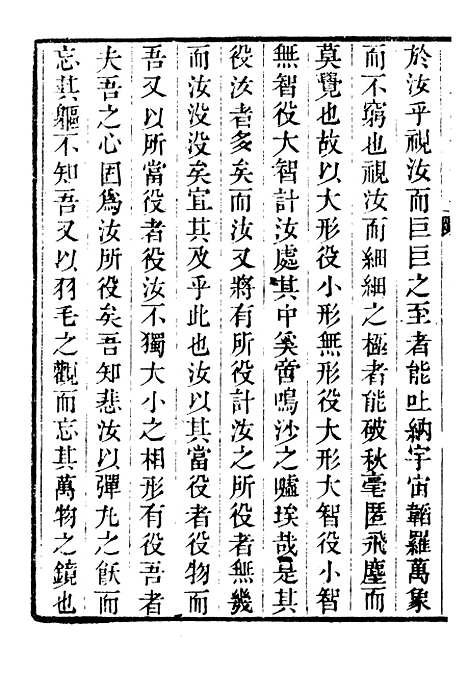 於汝乎視汝而巨巨之至者能吐納宇宙韜羅萬象
而不窮也視汝而細細之極者能破秋毫匿飛塵而
莫覺也故以大形役小形無形役大形大智役小智
無智役大智計汝處其中奚啻鳴沙之噓埃哉是其
役汝者多矣而汝又將有所役計汝之所役者無幾
而汝没没矣宜其及乎此也汝以其當役者役物而
吾又以所當役者役汝不獨大小之相形有役吾者
夫吾之心固為汝所役矣吾知悲汝以彈九之飫而
忘其軀不知吾又以羽毛之觀而忘其萬物之鏡也